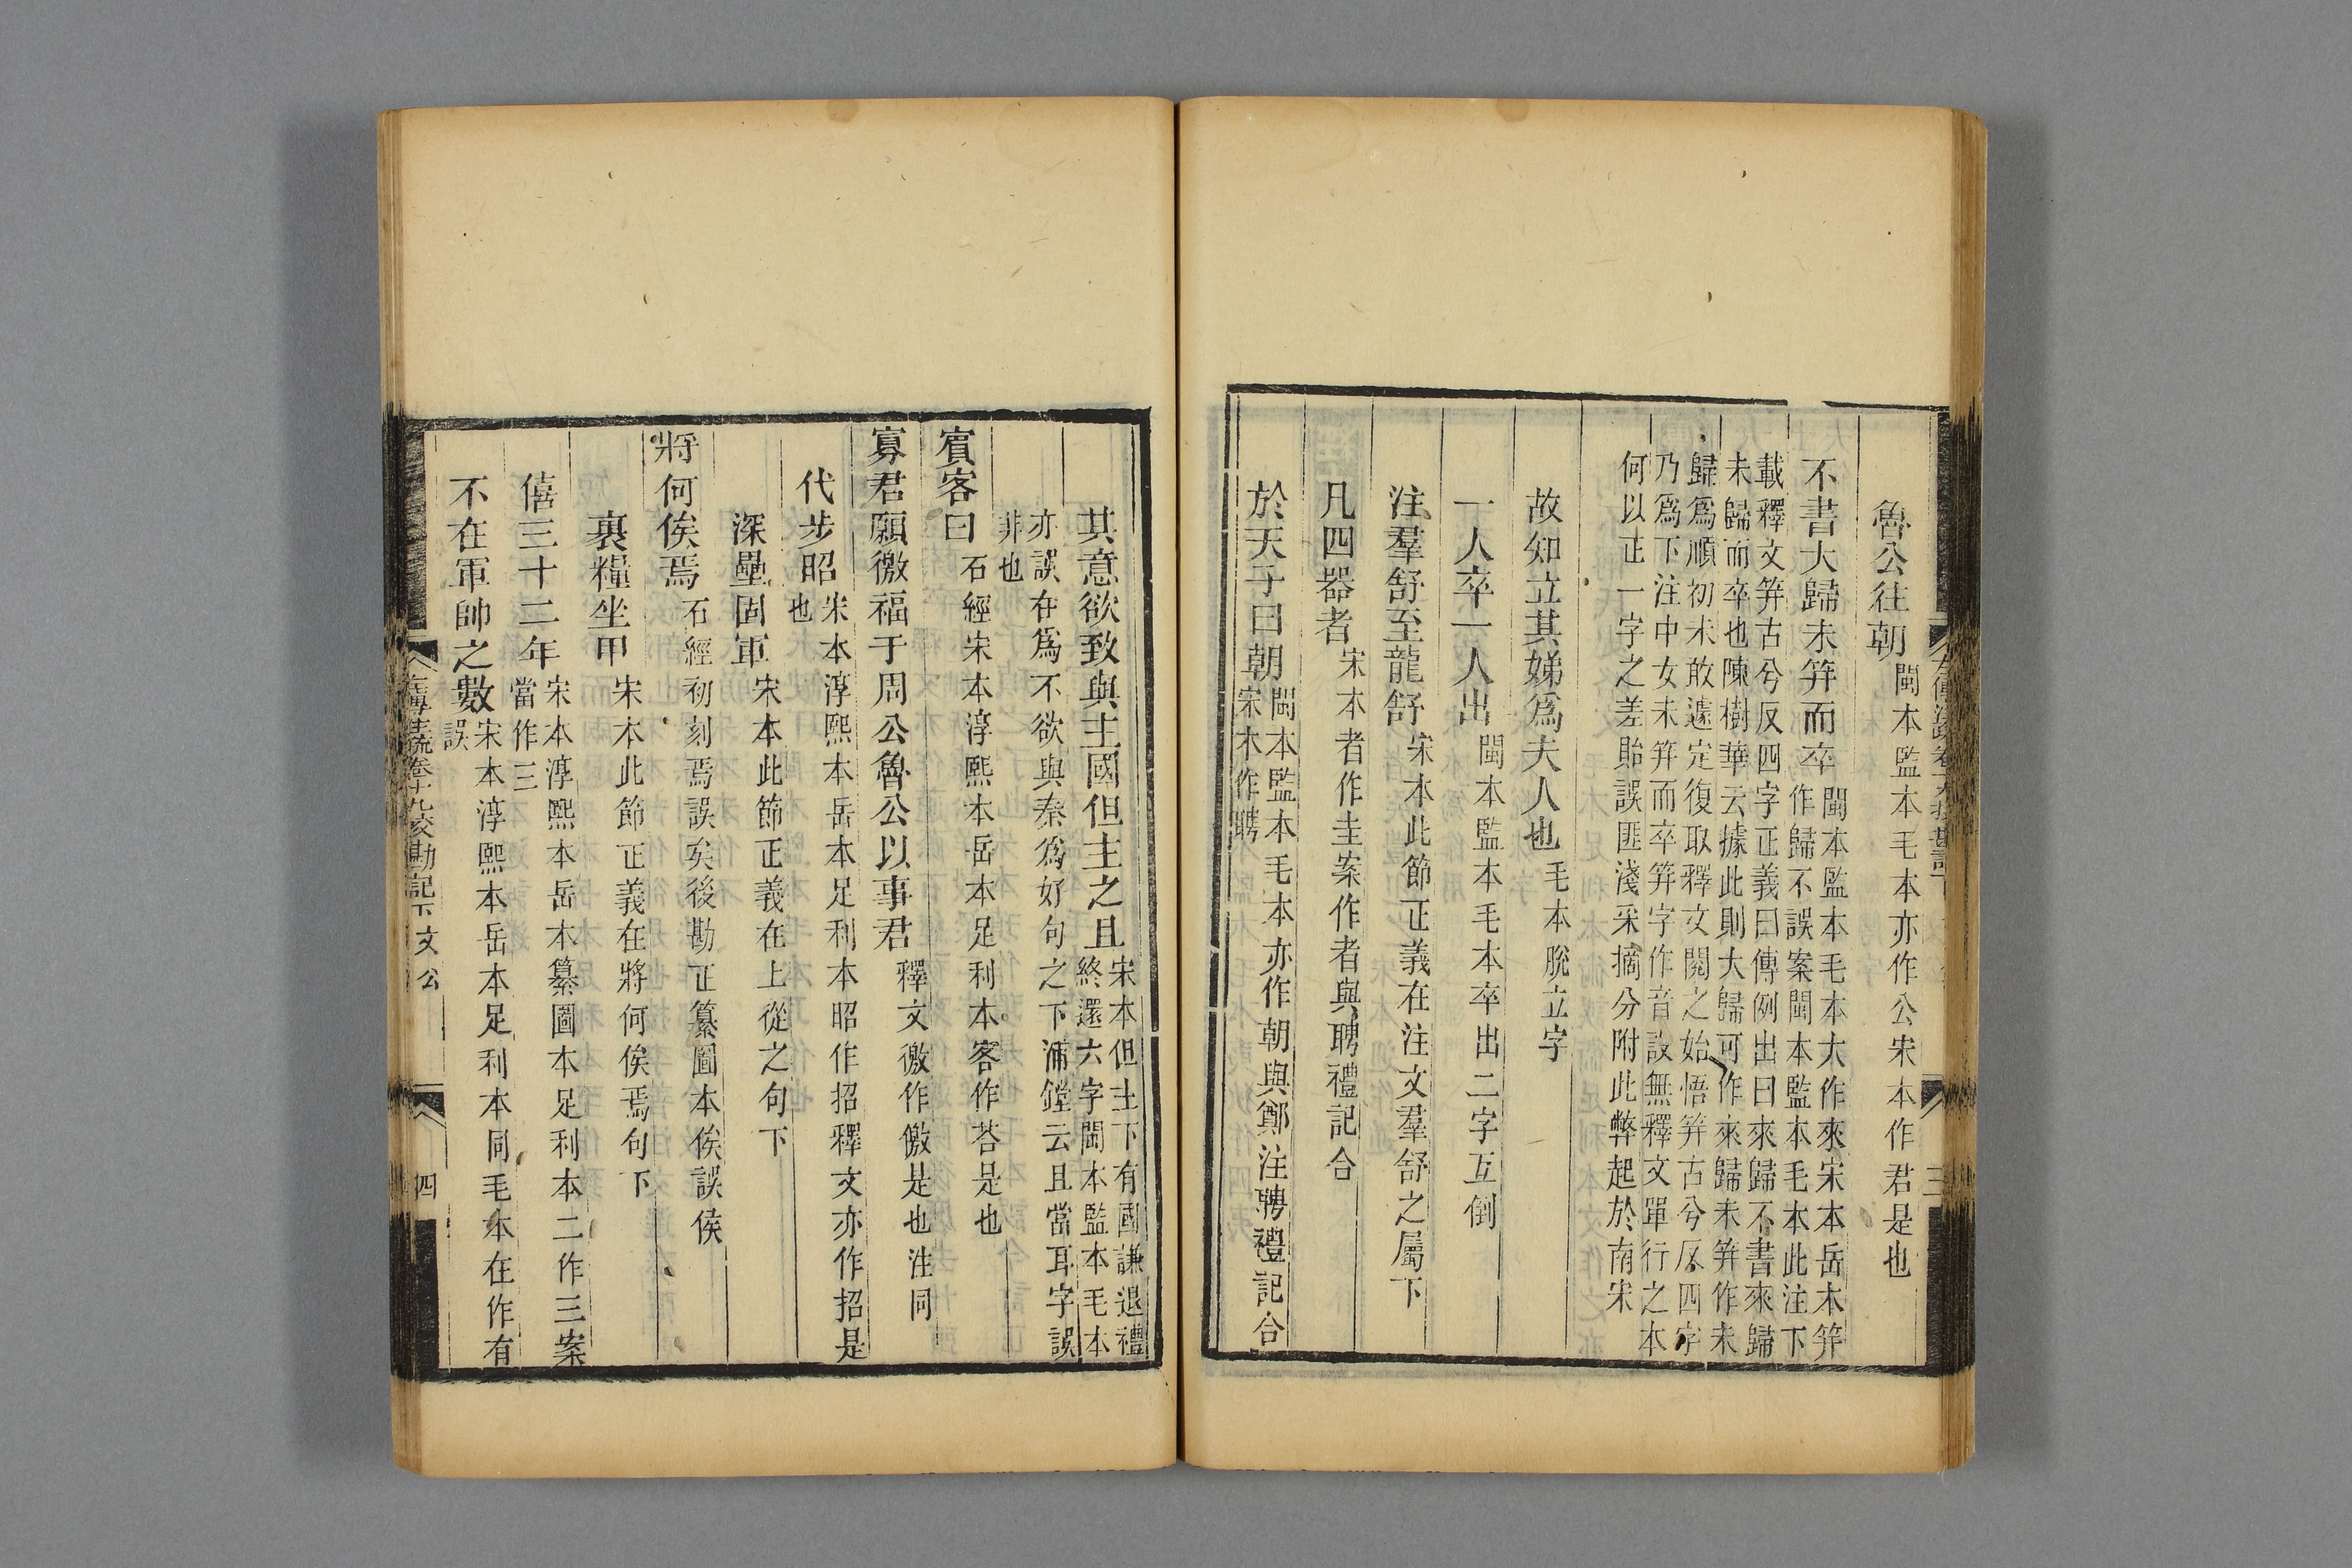 魯公往朝閩本監本毛本亦作公宋本作君是也
不書大歸未笄而卒閩本監本毛本大作來宋本岳本笄
作歸不誤案閩本監本毛本此注下
載釋文笄古兮反四字正義曰傳例出曰來歸不書來歸
未歸而卒也陳樹華云據此則大歸可作來歸未笄作未
歸爲順初未敢遽定復取釋文閱之始悟笄古兮反四字
乃爲下注中女未笄而卒笄字作音設無釋文單行之本
何以正一字之差貽誤匪淺采摘分附此弊起於南宋
故知立其娣爲夫人也毛本脫立字
一人卒一人出閩本監本毛本卒出二字互倒
注羣舒至龍舒宋本此節正義在注文羣舒之屬下
凡四器者宋本者作圭案作者與聘禮記合
於天子曰朝閩本監本毛本亦作朝與鄭注聘禮記合
宋本作聘
其意欲致與主國但主之且宋本但主下有國謙退禮
終還六字閩本監本毛本
亦誤在爲不欲與秦爲好句之下浦鏜云且當耳字誤
非也
賓客曰石經宋本淳熙本岳本足利本客作荅是也
寡君願徼福于周公魯公以事君釋文徼作儌是也注同
代步昭宋本淳熙本岳本足利本昭作招釋文亦作招是
也
深壘固軍宋本此節正義在上從之句下
將何俟焉石經初刻焉誤矣後勘正纂圖本俟誤侯
裹糧坐甲宋本此節正義在將何俟焉句下
僖三十二年宋本淳熙本岳本纂圖本足利本二作三案
當作三
不在軍帥之數宋本淳熙本岳本足利本同毛本在作有
誤
左傳注疏卷十九校勘記下 文公
四